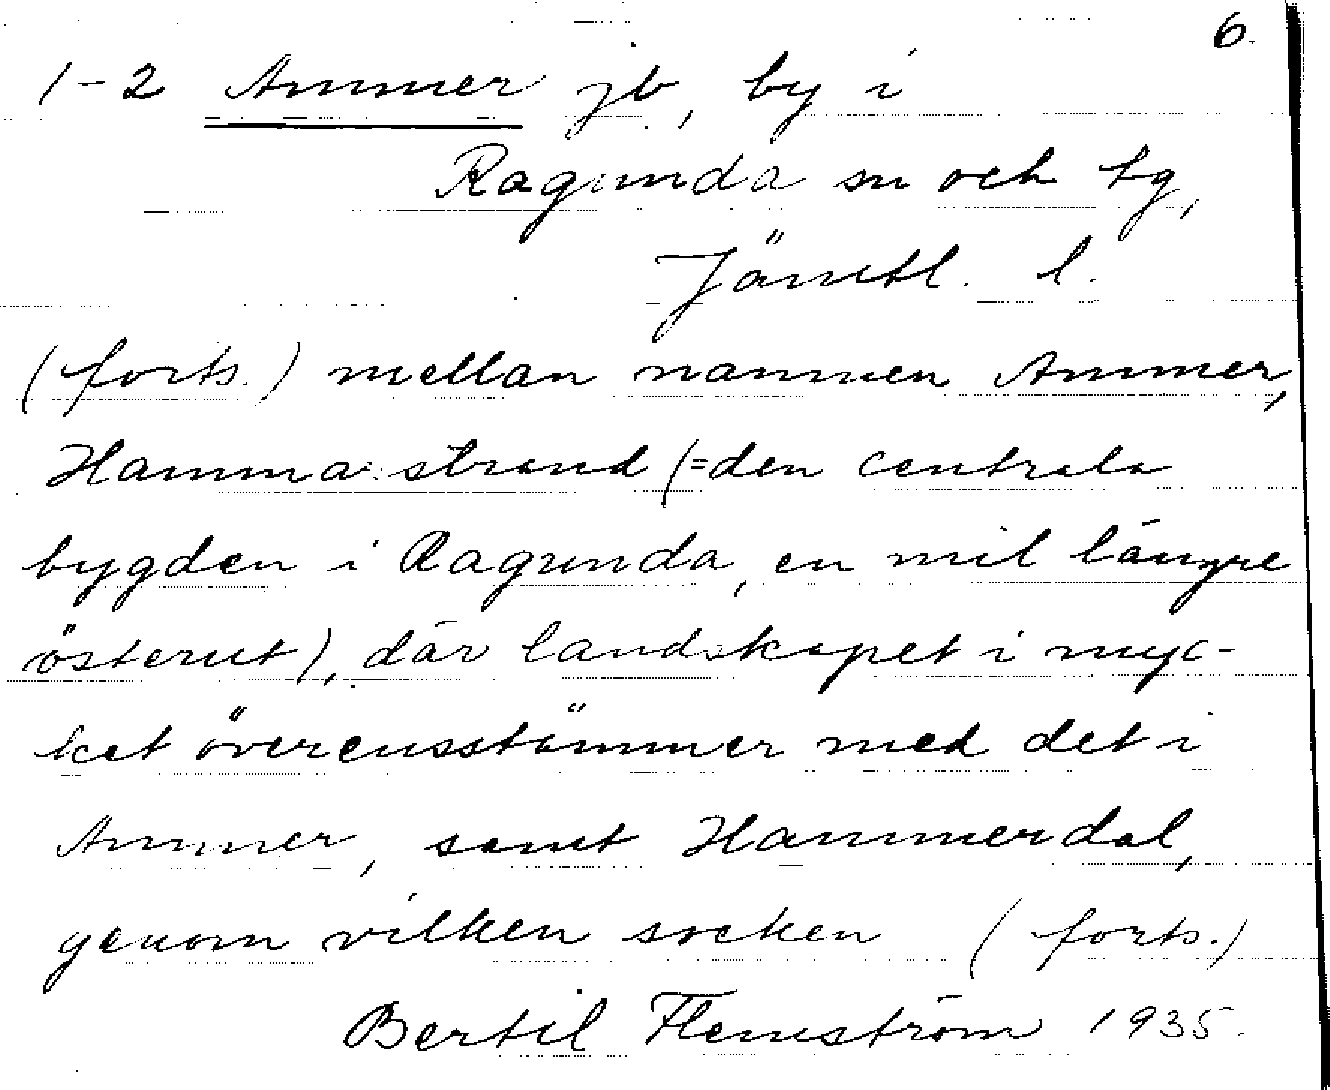 6.
1-2 Ammer jb, by i
Ragunda sn och tg,
Jämtl. l.
(forts.) mellan namnen Ammer,
Hammarstrand (=den centrala
bygden i Ragunda, en mil längre
österut), där landskapet i myc-
ket överensstämmer med det i
Ammer, samt Hammerdal,
genom vilken socken (forts.)
Bertil Flemström 1935.